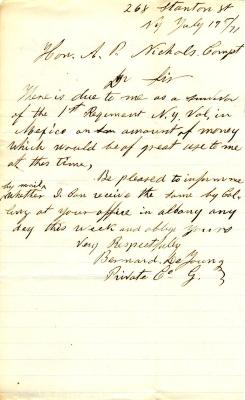 268 Stanton St
N Y July 19th/71
Hon. A. P. Nichols. Compt
Dr Sir
There is due to me as a survivor
of the 1st Regement N. Y. Vol, in
Mexico an amount of money
which would be of great use to me
at this time,
Be pleased to inform me
by mail
whether I can receive the same by Cal-
ling at your office in albany any
day this week and oblige yours
Very Respectfully
Bernard. DeYoung
Private Co G.